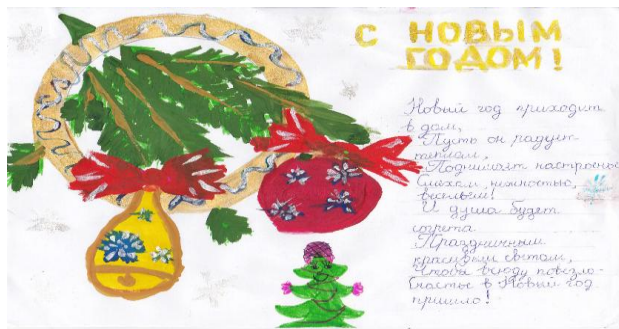 С НОВЫМ
ГОДОМ!
Новый год приходит
в дом,
Пусть он радует
теплом,
Поднимает настроенье
Смехом, нежностью,
весельем!
И душа будет
согрета
Праздничным
красивым светом,
Чтобы всюду повезло-
Счастье в Новый год
пришло!